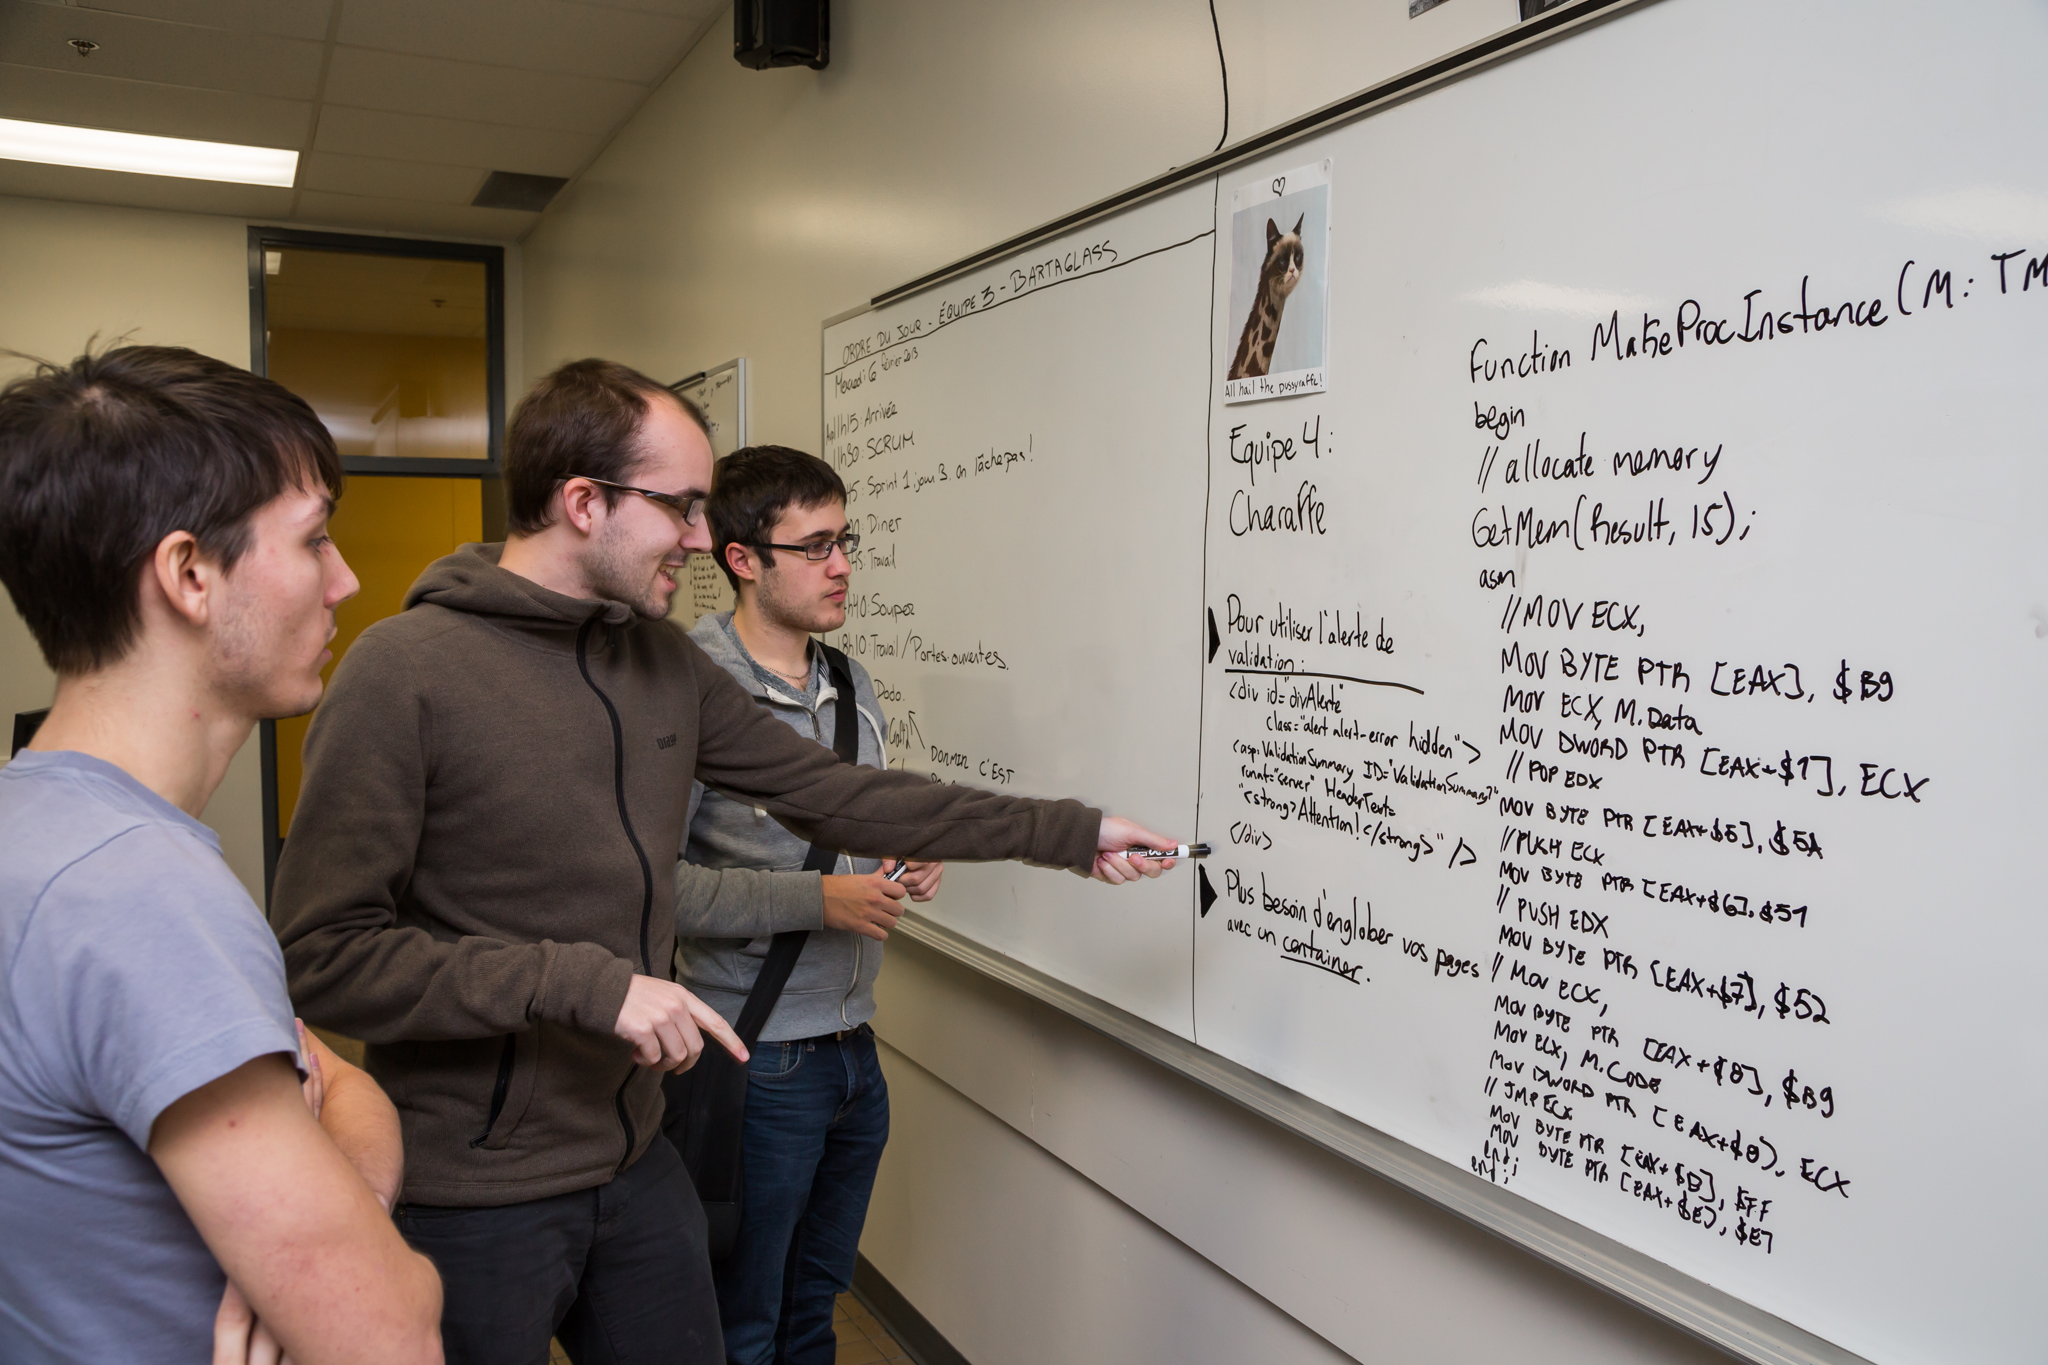 ORDRE DU JOUR - ÉQUIPE 3 - BARTAGLASS
Mercredi 6 février 2013
11h15: Arrivée
11h30: SCRUM
45: Sprint 1, jour 3. on lâche pas!
Diner
45: Travail
h40: Souper
18h10: Travail / Portes-ouvertes.
Dodo.
DORMIR C'EST
♡
All hail the pussyraffe!
Equipe 4:
Charaffe
Pour utiliser l'alerte de
validation:
<div id="divAlerte"
class="alert alert-error hidden">
<asp:ValidationSummary ID="ValidationSummary1"
runat="server" HeaderText=
"<strong>Attention!</strong>" />
</div>
Plus besoin d'englober vos pages
avec un container.
Function MakeProcInstance(M: TM
begin
// allocate memory
GetMem(Result, 15);
asm
//MOV ECX,
MOV BYTE PTR [EAX], $B9
MOV ECX, M.Data
MOV DWORD PTR [EAX+$1], ECX
// POP EDX
MOV BYTE PTR [EAX+$5], $5A
//PUSH ECX
MOV BYTE PTR [EAX+$6], $51
// PUSH EDX
MOV BYTE PTR [EAX+$7], $52
// MOV ECX,
MOV BYTE PTR [EAX+$8], $B9
MOV ECX, M.CODE
MOV DWORD PTR [EAX+$8), ECX
// JMP ECX
MOV BYTE PTR [EAX+$D], $FF
MOV BYTE PTR [EAX+$E], $E1
end;
end;